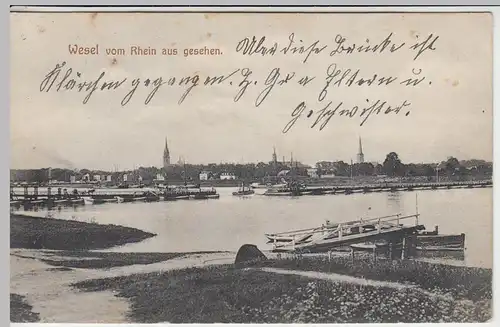 Wesel vom Rhein aus gesehen.
Über diese Brücke ist
Klärchen gegangen. H. Gr a Eltern u.
Geschwister.